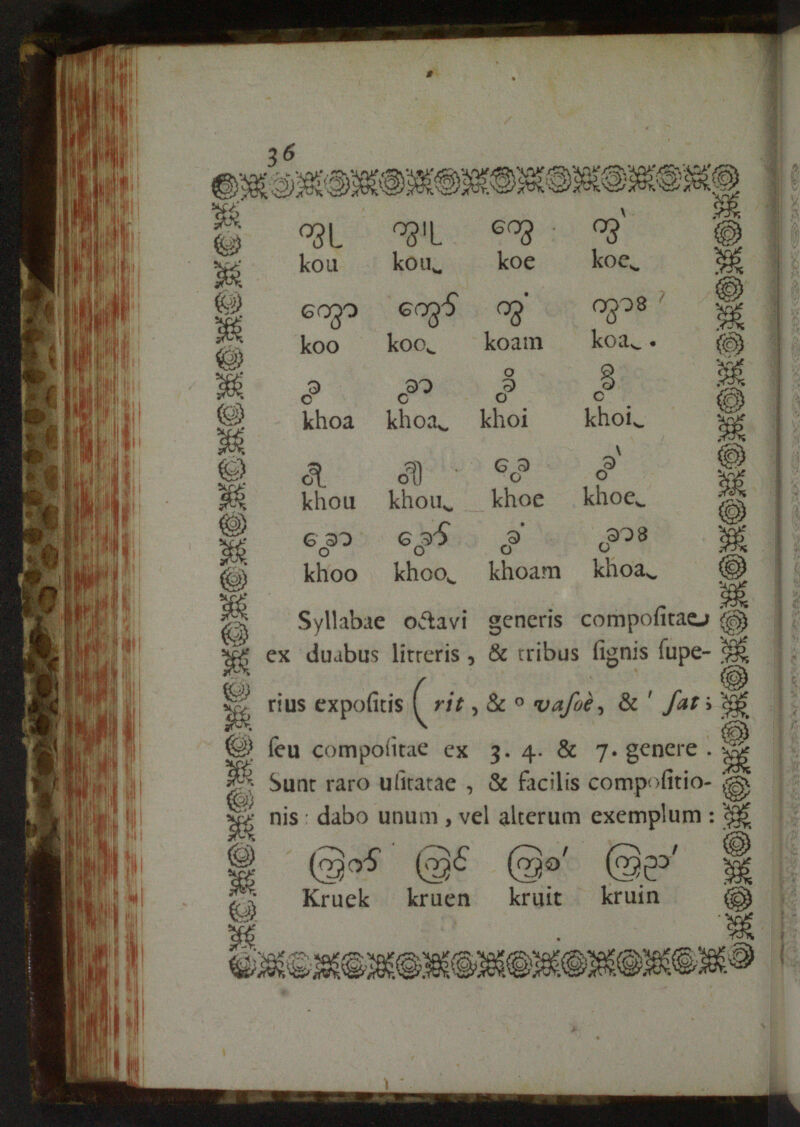 36
ကွု ကွူ ကွေ ကွဲ
kou kou⌄ koe koe⌄
ကွော ကွော် ကွံ ကွား
koo koo⌄ koam koa⌄ .
ခွ ခွာ ခွိ ခွီ
khoa khoa⌄ khoi khoi⌄
ခွု ခွူ ခွေ ခွဲ
khou khou⌄ khoe khoe⌄
ခွော ခွော် ခွံ ခွား
khoo khoo⌄ khoam khoa⌄
Syllabae octavi generis compoſitae
ex duabus litteris , & tribus ſignis ſupe-
rius expoſitis ( rit , & o vaſoè , & ' ſat ;
ſeu compoſitae ex 3. 4. & 7. genere .
Sunt raro uſitatae , & facilis compoſitio-
nis : dabo unum , vel alterum exemplum :
ကြွက် ကြွင် ကြွစ် ကြွည်
Kruek kruen kruit kruin